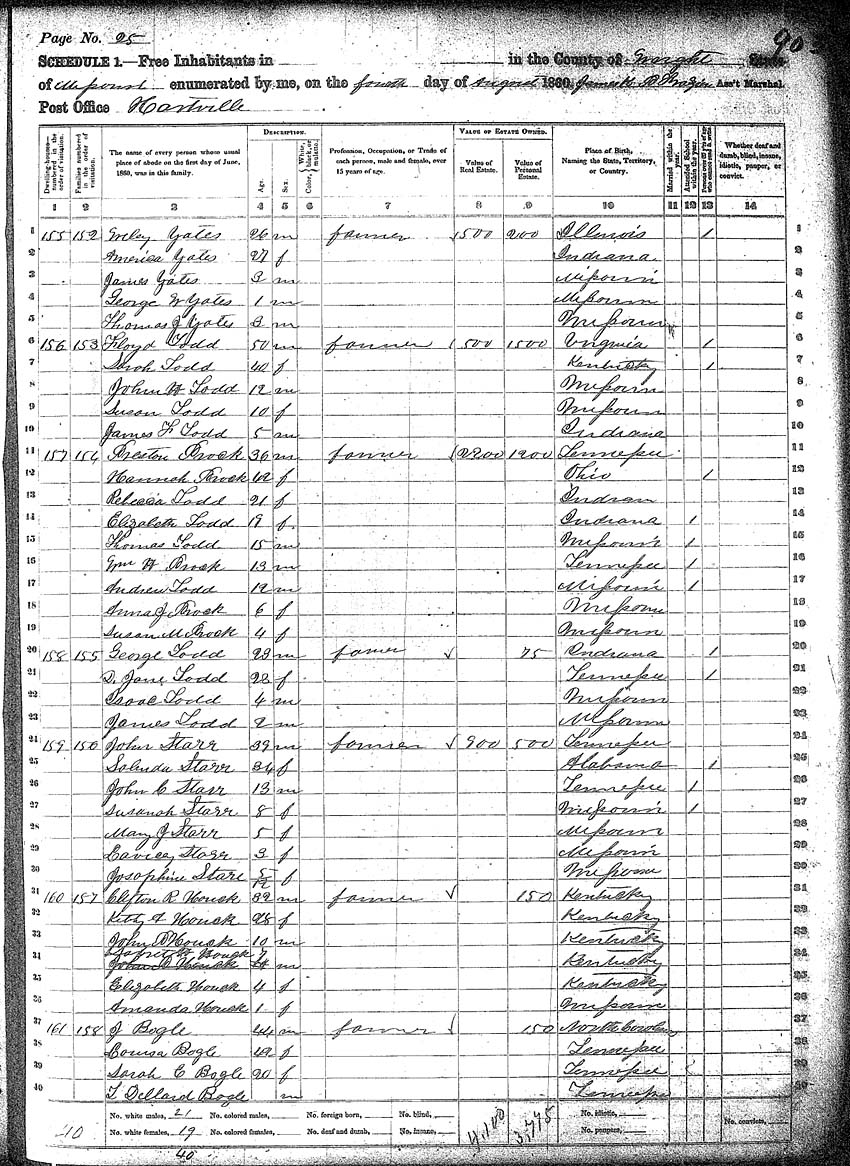 Page No. 25
90
SCHEDULE 1.—Free Inhabitants in in the County of Wright State
of Missouri enumerated by me, on the fourth day of August 1860. Ass't Marshal.
Post Office Hartville
Dwelling-houses—numbered in the order of visitation.
Families numbered in the order of visitation.
The name of every person whose usual place of abode on the first day of June, 1860, was in this family.
Description.
Age.
Sex.
Color, White, black, or mulatto.
Profession, Occupation, or Trade of each person, male and female, over 15 years of age.
Value of Estate Owned.
Value of Real Estate.
Value of Personal Estate.
Place of Birth, Naming the State, Territory, or Country.
Married within the year.
Attended School within the year.
Persons over 20 y'rs of age who cannot read & write.
Whether deaf and dumb, blind, insane, idiotic, pauper, or convict.
1 2 3 4 5 6 7 8 9 10 11 12 13 14
1 155 152 Wiley Yates 26 m farmer 1500 200 Illinois 1 1
2 America Yates 27 f Indiana 2
3 James Yates 3 m Missouri 3
4 George W Yates 1 m Missouri 4
5 Thomas J Yates 3 m Missouri 5
6 156 153 Floyd Todd 50 m farmer 1500 1500 Virginia 1 6
7 Sarah Todd 40 f Kentucky 1 7
8 John H Todd 12 m Missouri 8
9 Susan Todd 10 f Missouri 9
10 James F Todd 5 m Indiana 10
11 157 154 Preston Brock 36 m farmer 2200 1200 Tennessee 11
12 Hannah Brock 42 f Ohio 1 12
13 Rebecca Todd 21 f Indian 13
14 Elizabeth Todd 19 f Indiana 1 14
15 Thomas Todd 15 m Missouri 1 15
16 Wm H Brock 13 m Tennessee 1 16
17 Andrew Todd 12 m Missouri 1 17
18 Anna J Brock 6 f Missouri 18
19 Susan M Brock 4 f Missouri 19
20 158 155 George Todd 23 m farmer 75 Indiana 1 20
21 D. Jane Todd 22 f Tennessee 1 21
22 Isaac Todd 4 m Missouri 22
23 James Todd 2 m Missouri 23
24 159 156 John Starr 39 m farmer 900 500 Tennessee 24
25 Salinda Starr 34 f Alabama 1 25
26 John C Starr 13 m Tennessee 1 26
27 Susanah Starr 8 f Missouri 1 27
28 Mary J Starr 5 f Missouri 28
29 Starr 3 f Missouri 29
30 Josephine Starr 5/12 f Missouri 30
31 160 157 Clifton R Houck 32 m farmer 150 Kentucky 31
32 Kitty A Houck 28 f Kentucky 32
33 John B Houck 10 m Kentucky 33
34 Houck 7 m Kentucky 34
35 Elizabeth Houck 4 f Kentucky 35
36 Amanda Houck 1 f Missouri 36
37 161 158 J Bogle 44 m farmer 150 North Carolina 37
38 Louisa Bogle 42 f Tennessee 38
39 Sarah C Bogle 20 f Tennessee 39
40 T Dellard Bogle m Tennessee 40
No. white males, 21 No. colored males, No. foreign born, No. blind, No. idiotic, No. convicts,
40 No. white females, 19 No. colored females, No. deaf and dumb, No. insane, 3,775 No. paupers,
40